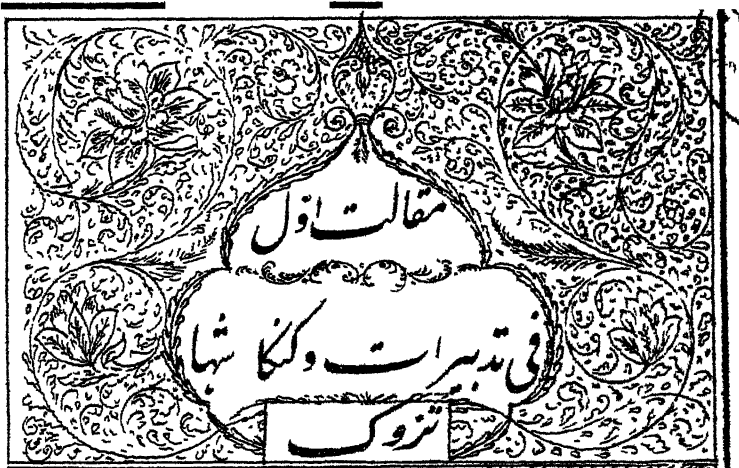 مقالت اوّل
فی تدبیرات و کنکاشها
تزوک